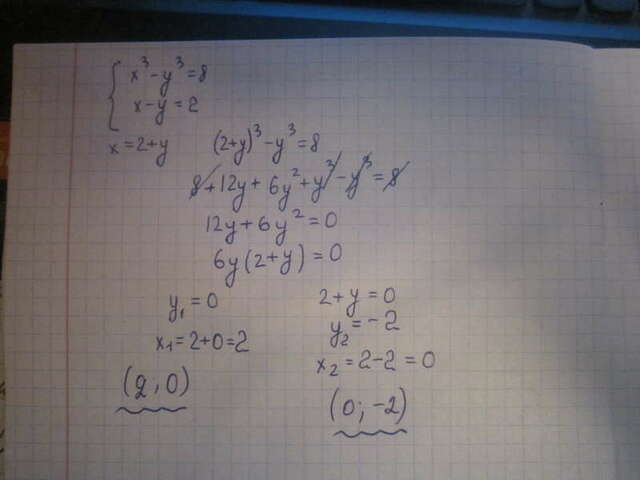 { x³ - y³ = 8
x - y = 2
x = 2+y (2+y)³ - y³ = 8
8 + 12y + 6y² + y³ - y³ = 8
12y + 6y² = 0
6y(2+y) = 0
y₁ = 0 2+y = 0
y₂ = -2
x₁ = 2+0 = 2
x₂ = 2-2 = 0
(2; 0)
(0; -2)